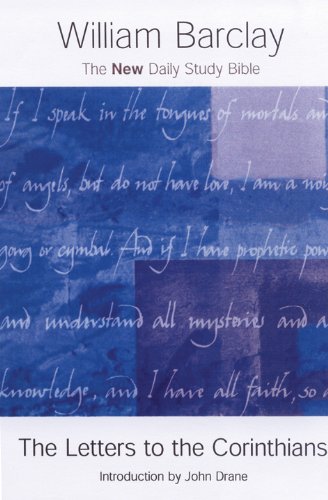 William Barclay
The New Daily Study Bible
If I speak in the tongues of mortals and
of angels, but do not have love, I am a noi
gong or cymbal. And if I have prophetic pow
and understand all mysteries and a
knowledge, and I have all faith, so a
The Letters to the Corinthians
Introduction by John Drane